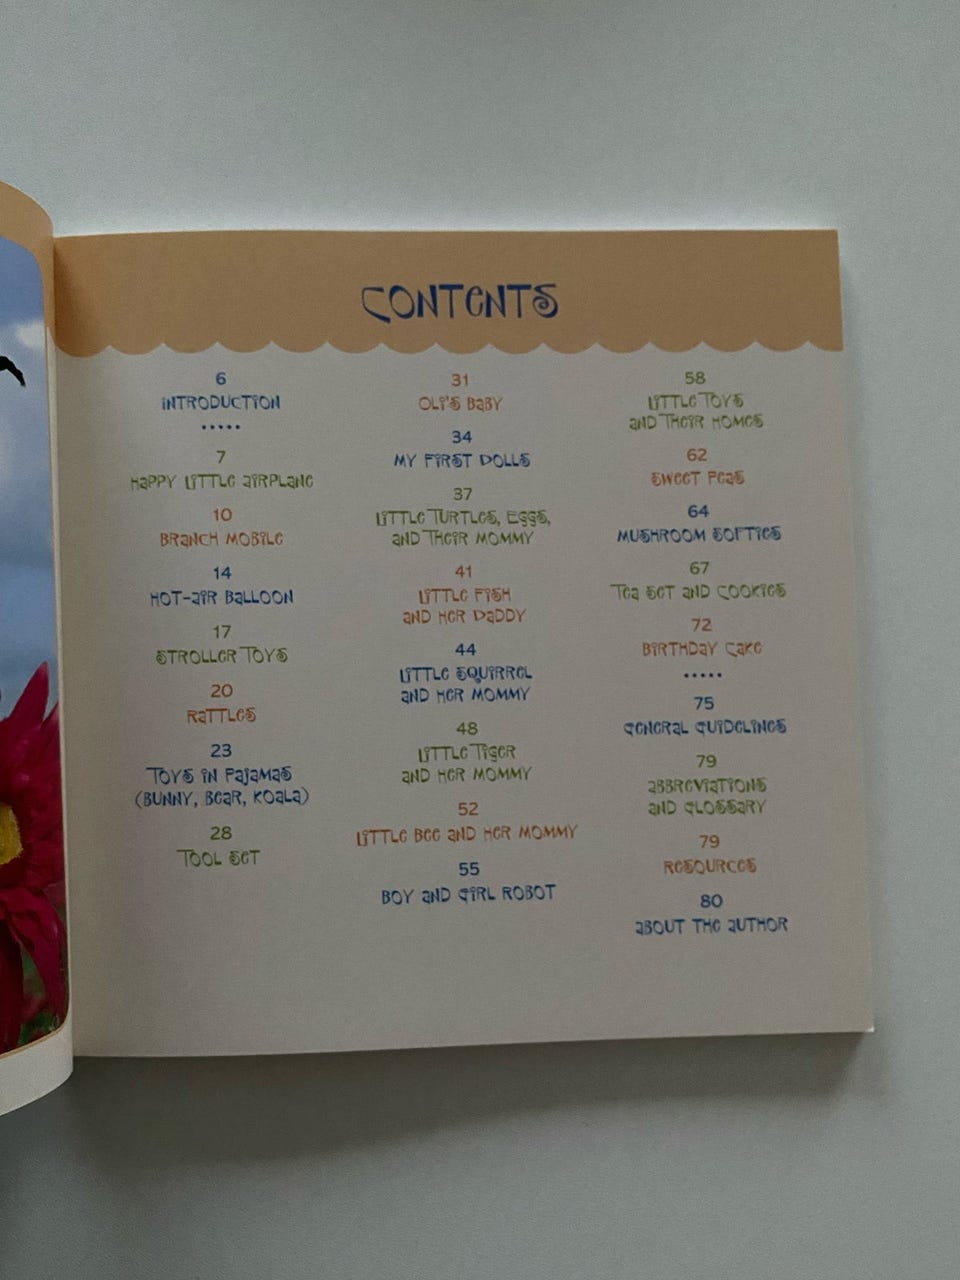 CONTENTS
6
INTRODUCTION
•••••
7
HAPPY LITTLE AIRPLANE
10
BRANCH MOBILE
14
HOT-AIR BALLOON
17
STROLLER TOYS
20
RATTLES
23
TOYS IN PAJAMAS
(BUNNY, BEAR, KOALA)
28
TOOL SET
31
OLI'S BABY
34
MY FIRST DOLLS
37
LITTLE TURTLES, EGGS,
AND THEIR MOMMY
41
LITTLE FISH
AND HER DADDY
44
LITTLE SQUIRREL
AND HER MOMMY
48
LITTLE TIGER
AND HER MOMMY
52
LITTLE BEE AND HER MOMMY
55
BOY AND GIRL ROBOT
58
LITTLE TOYS
AND THEIR HOMES
62
SWEET PEAS
64
MUSHROOM SOFTIES
67
TEA SET AND COOKIES
72
BIRTHDAY CAKE
•••••
75
GENERAL GUIDELINES
79
ABBREVIATIONS
AND GLOSSARY
79
RESOURCES
80
ABOUT THE AUTHOR